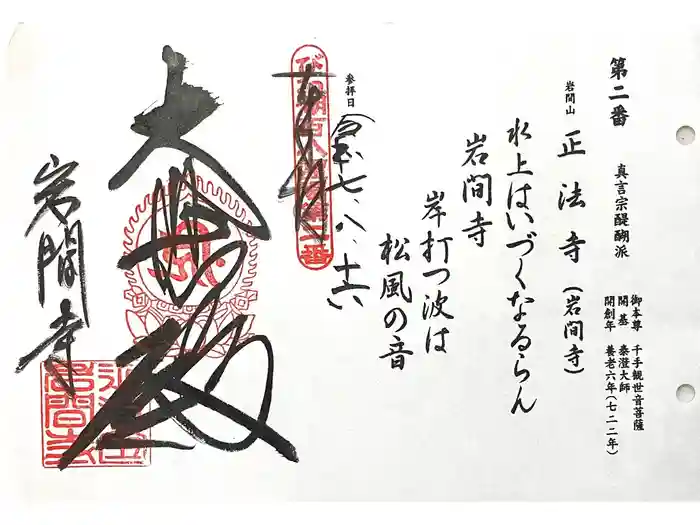 第二番
真言宗醍醐派
御本尊 千手観世音菩薩
開基 泰澄大師
開創年 養老六年(七二二年)
岩間山 正法寺(岩間寺)
水上はいづくなるらん
岩間寺
岸打つ波は
松風の音
参拝日
令和七、八、十六
大悲殿
岩間寺